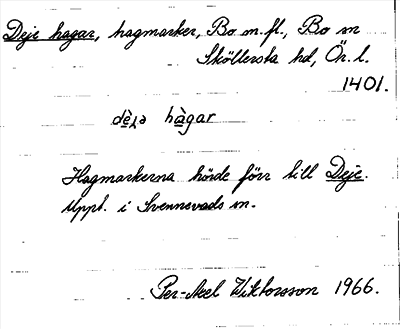 Deje hagar, hagmarker, Bo m.fl., Bo sn
Sköllersta hd, Ör. l.
1401.
hàgar
Hagmarkerna hörde förr till Deje.
Uppt. i Svennevads sn.
Per-Axel Wiktorsson 1966.